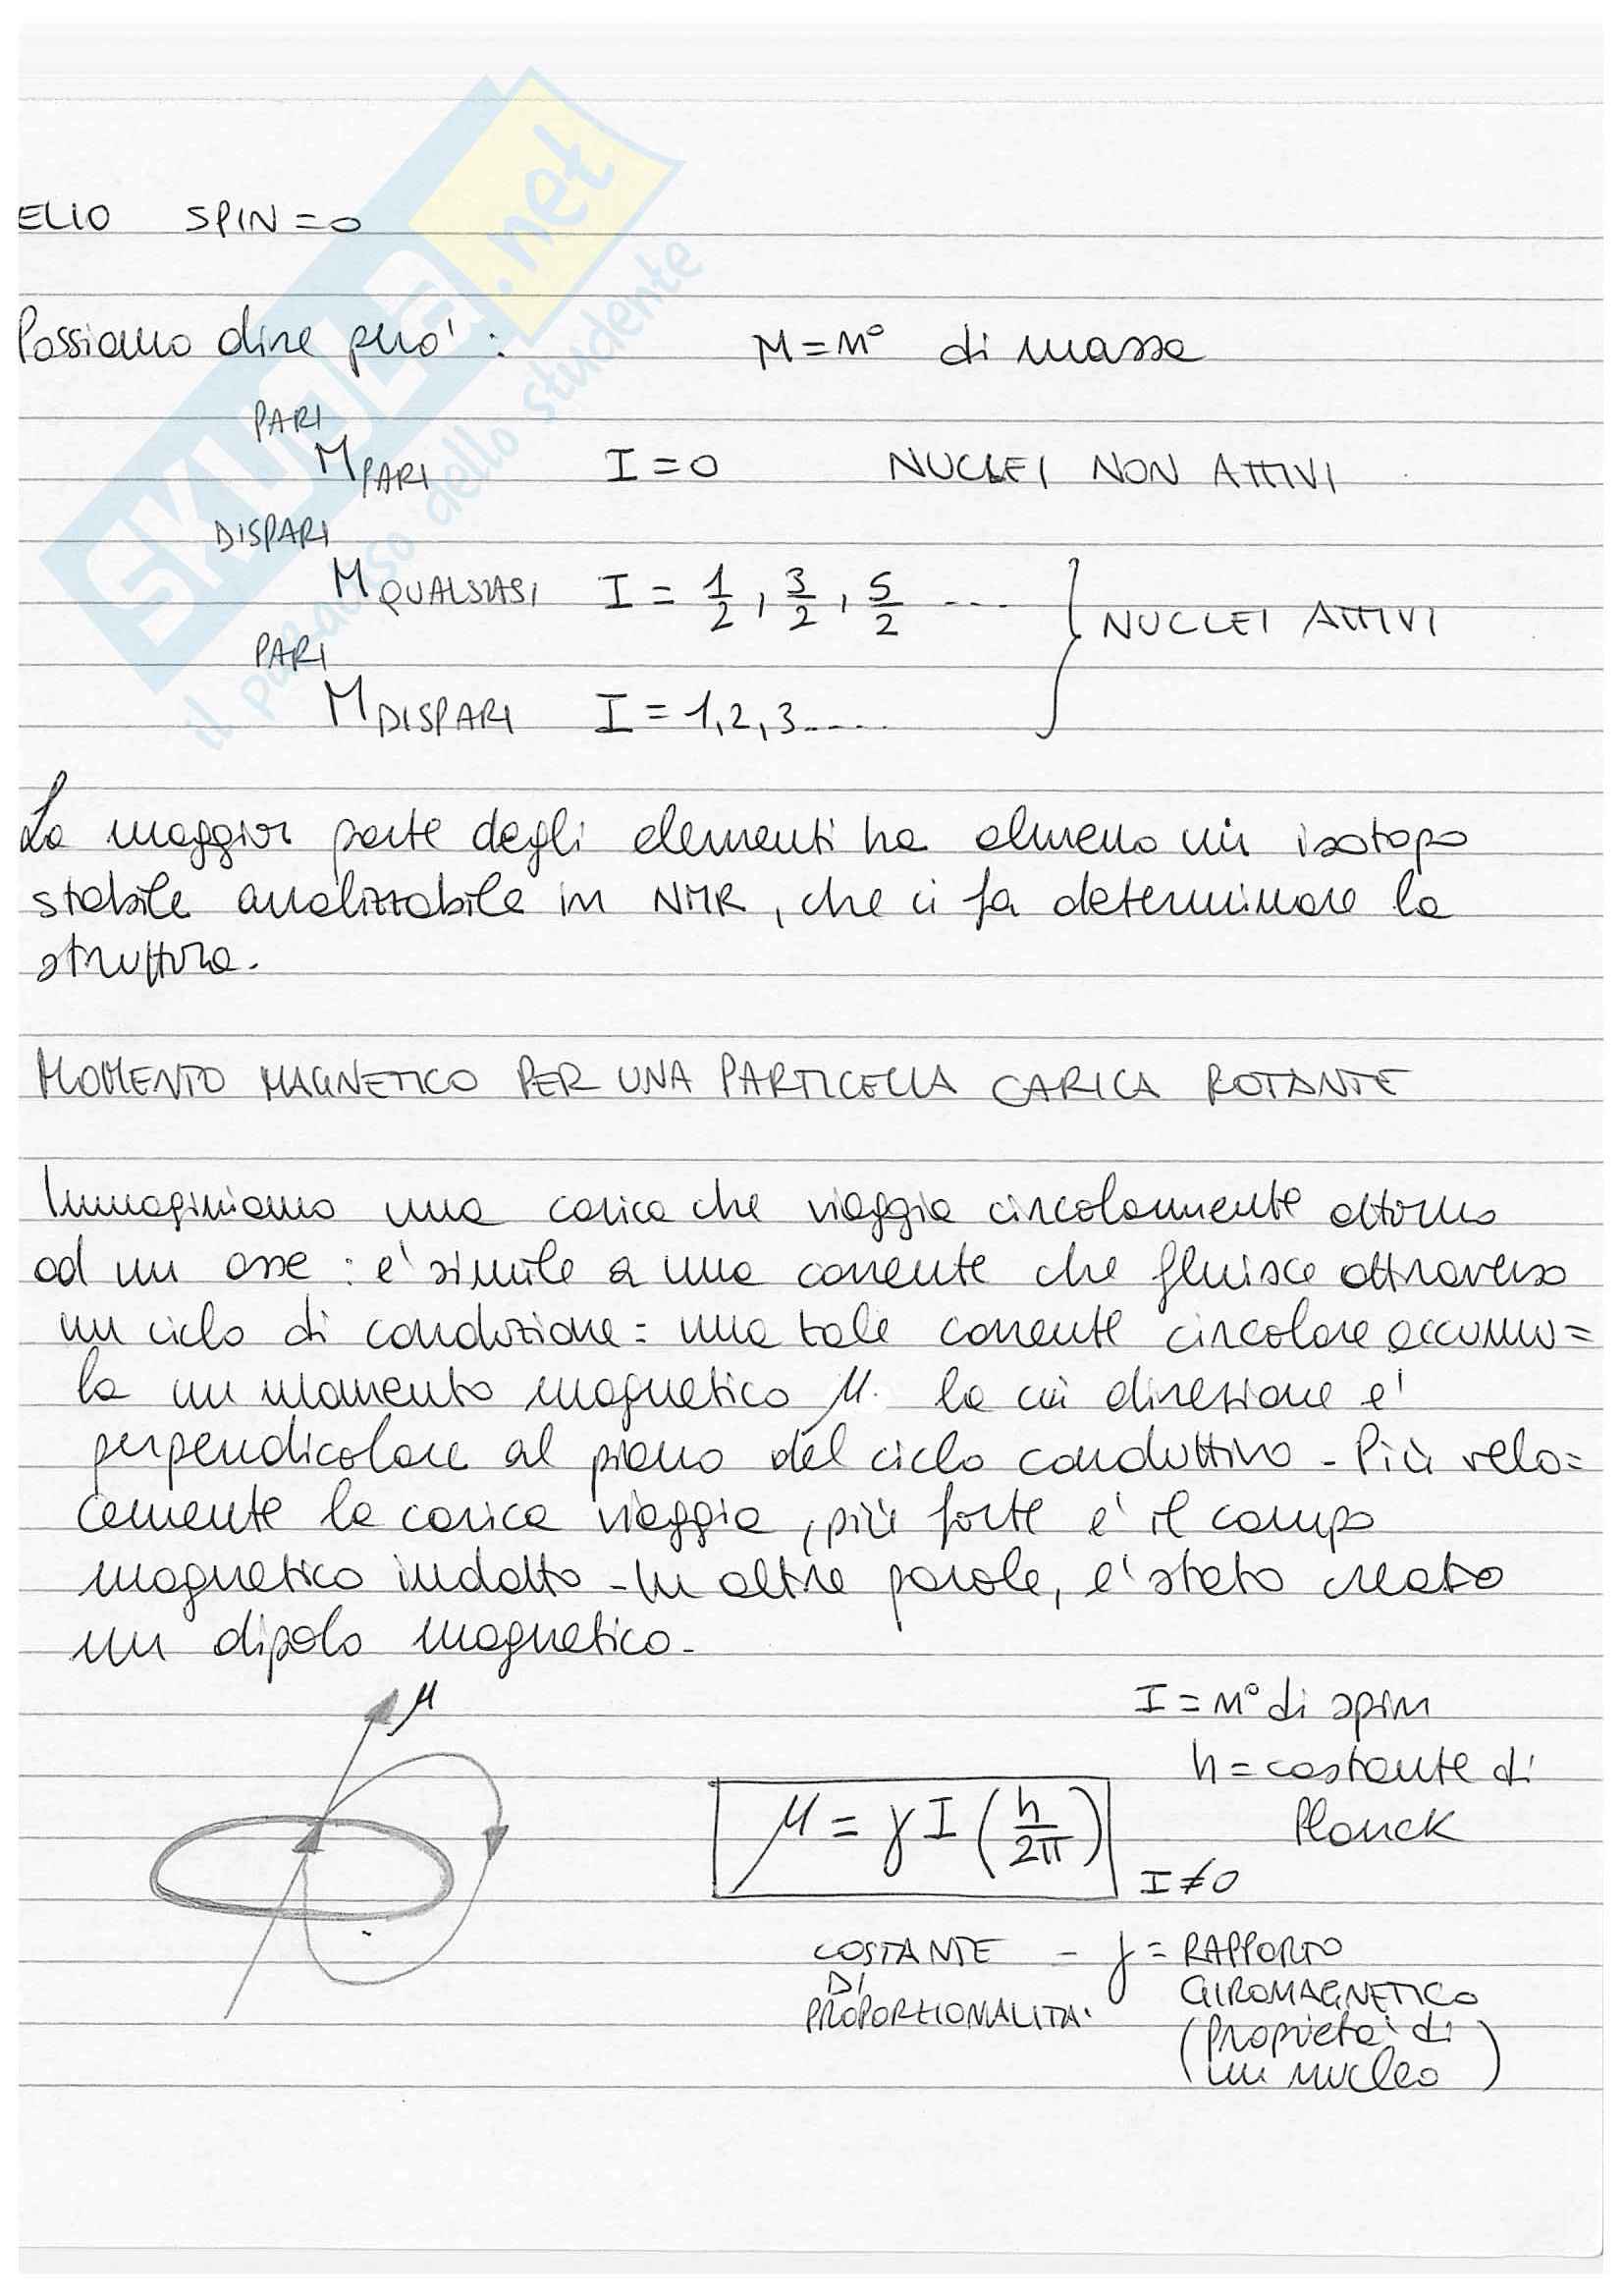 SKUOLA.net
il paradiso dello studente
ELIO SPIN = 0
Possiamo dire però: M = n° di massa
PARI
M PARI I = 0 NUCLEI NON ATTIVI
DISPARI
M QUALSIASI I = 1/2, 3/2, 5/2 ... } NUCLEI ATTIVI
PARI
M DISPARI I = 1, 2, 3.....
La maggior parte degli elementi ha almeno un isotopo
stabile analizzabile in NMR, che ci fa determinare la
struttura.
MOMENTO MAGNETICO PER UNA PARTICELLA CARICA ROTANTE
Immaginiamo una carica che viaggia circolarmente attorno
ad un asse: e' simile a una corrente che fluisce attraverso
un ciclo di conduzione: una tale corrente circolare accumu=
la un momento magnetico μ. la cui direzione e'
perpendicolare al piano del ciclo conduttivo - Più velo=
cemente la carica viaggia, più forte e' il campo
magnetico indotto - In altre parole, e' stato creato
un dipolo magnetico -
μ
I = n° di spin
h = costante di
Planck
μ = γ I (h/2π)
I ≠ 0
COSTANTE - γ = RAPPORTO
DI GIROMAGNETICO
PROPORZIONALITA' (Proprieta' di
un nucleo)